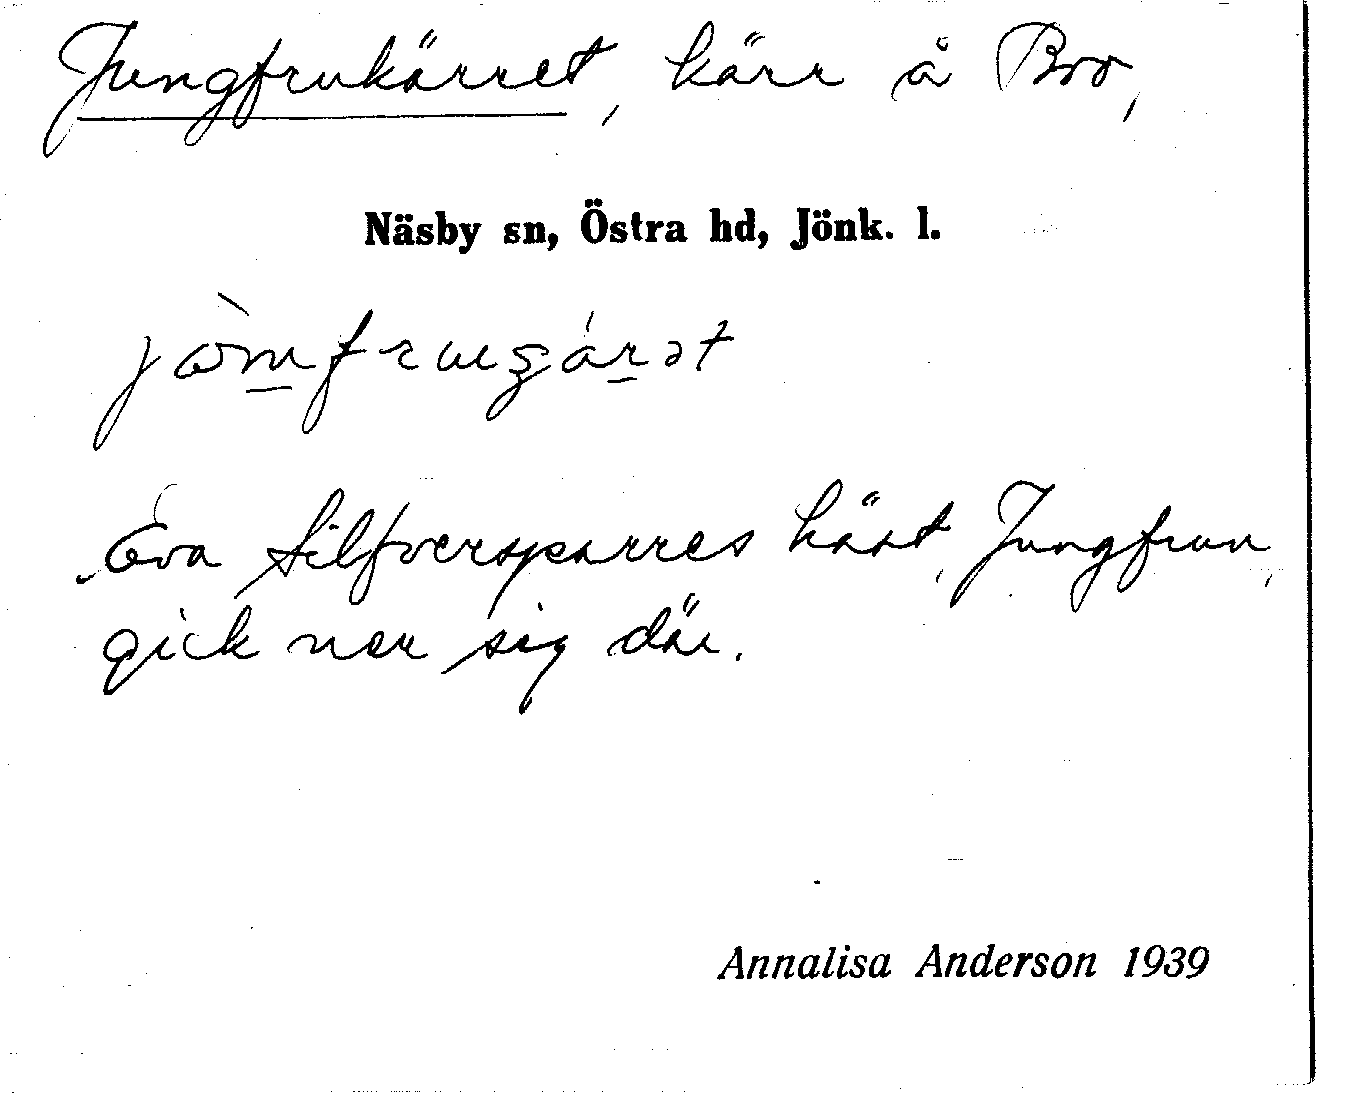 Jungfrukärret, kärr å Bro,
Näsby sn, Östra hd, Jönk. l.
Eva Silfversparres häst, Jungfrun,
gick ner sig där.
Annalisa Anderson 1939